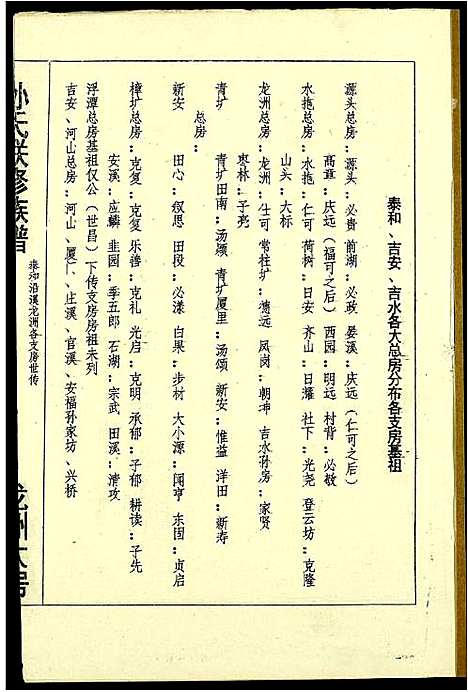 泰和、吉安、吉水各大总房分布各支房基祖
源头总房：源头：必贵 前湖：必政 晏溪：庆远（仁可之后）
高章：庆远（福可之后） 西园：明远 村背：必敬
水拖总房：水拖：仁可 荷树：日安 齐山：日灌 社下：光尧 登云坊：克隆
山头：大标
龙洲总房：龙洲：仕可 常柱圹：德远 凤岗：朝坤 吉水孙房：家贤
枣林：子亮
青圹 青圹田南：汤颎 青圹厦里：汤颂 新安：惟益 洋田：新寿
总房：
新安 田心：叙思 田段：必漾 白果：步材 大小源：闻亨 东固：贞启
樟圹总房：克复：克复 乐善：克礼 光启：克明 承郁：子郁 耕读：子先
安溪：应麟 韭园：季五郎 石湖：宗武 田溪：清攻
浮潭总房基祖仅公（世昌）下传支房房祖未列
吉安、河山总房：河山、厦厂、庄溪、官溪、安福孙家坊、兴桥
孙氏联修族谱
泰和沿溪龙洲各支房世传
龙洲大房